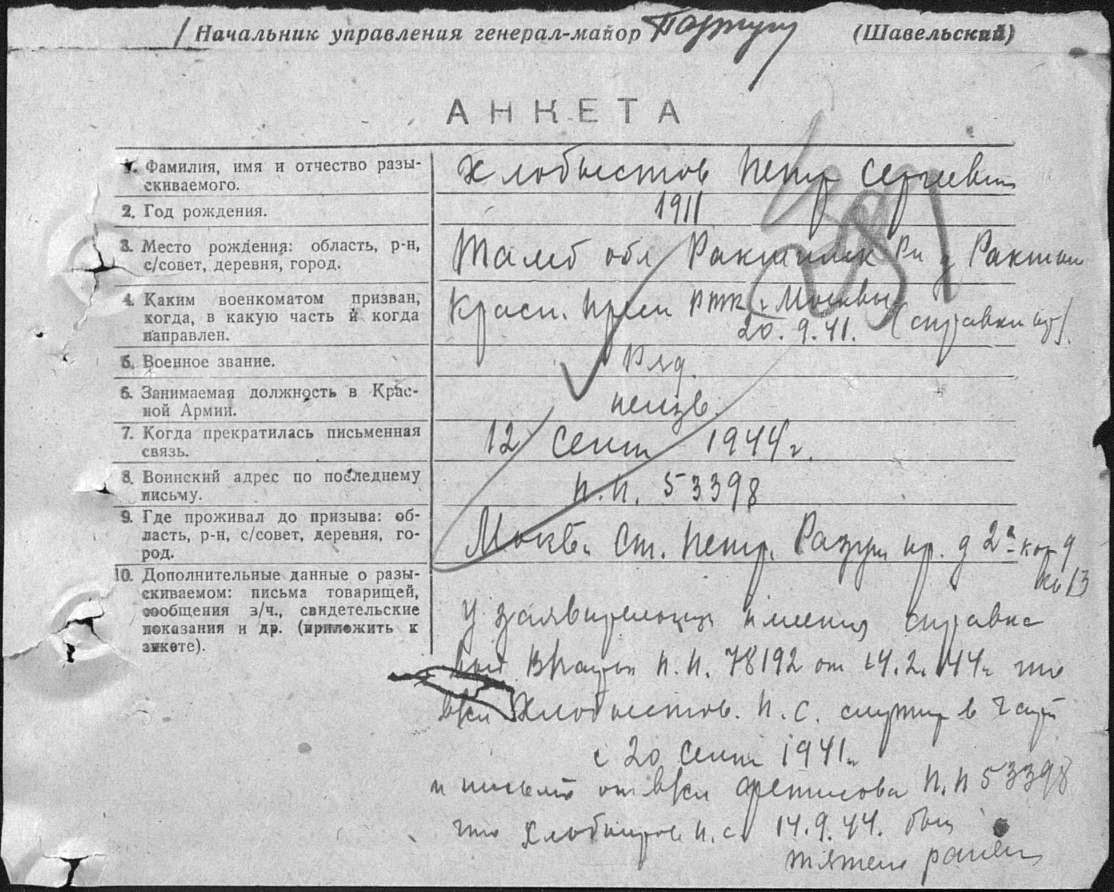 Начальник управления генерал-майор (Шавельский)
АНКЕТА
1. Фамилия, имя и отчество разы-
скиваемого.
Хлобыстов Петр Сергеевич
2. Год рождения.
1911
3. Место рождения: область, р-н,
с/совет, деревня, город.
Тамб обл
4. Каким военкоматом призван,
когда, в какую часть и когда
направлен.
Красн. Прес РВК г. Москвы
20.9.41. (справки нет).
5. Военное звание.
Ряд.
6. Занимаемая должность в Крас-
ной Армии.
неизв.
7. Когда прекратилась письменная
связь.
12 сент 1944 г.
8. Воинский адрес по последнему
письму.
п.п. 53398
9. Где проживал до призыва: об-
ласть, р-н, с/совет, деревня, го-
род.
Моск. Ст. Петр. Разум пр. д 2а
кв 13
10. Дополнительные данные о разы-
скиваемом: письма товарищей,
сообщения з/ч., свидетельские
показания и др. (приложить к
анкете).
у заявительницы имеется справка
п.п. 78192 от 14.2.44г что
Хлобыстов. П. С. служит в части
с 20 сент 1941г
и письмо от в/сл Фетисова п.п 53398
что Хлобыстов П.С. 14.9.44. был
тяжело ранен